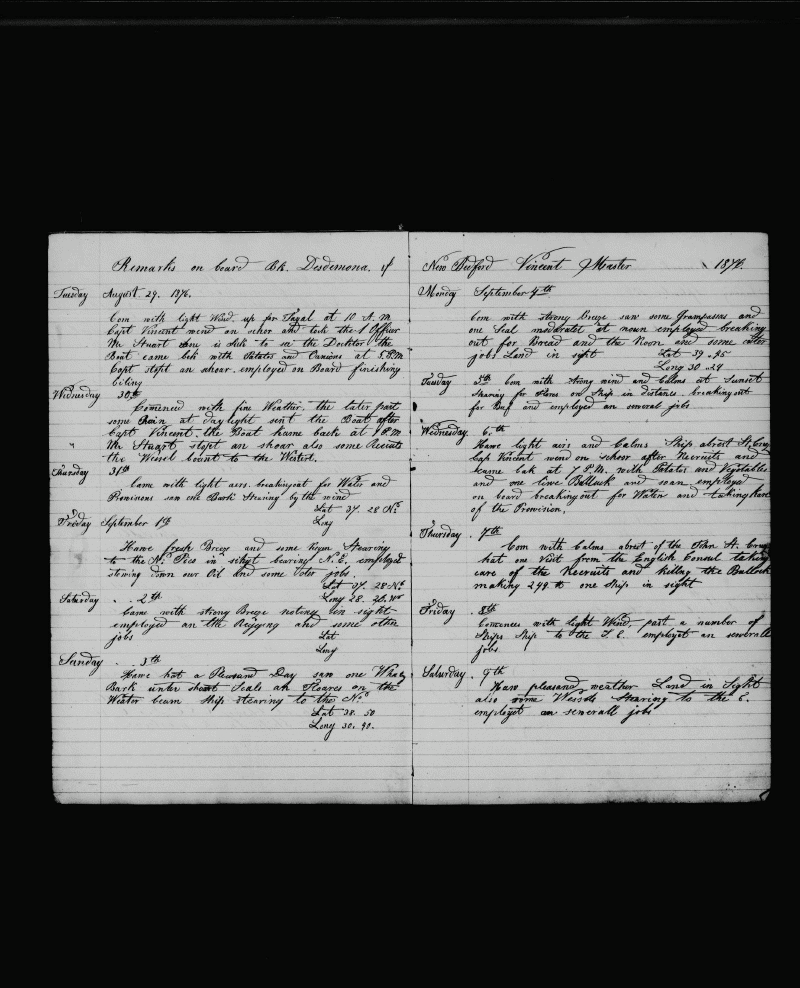 Remarks on board Bk. Desdemona. of
Tuesday August 29. 1876.
Com with light Wind. up for Fayal at 10 A. M
Capt Vincent wend on schor and tock the 1 Officer
Mr Stuart one is Sick to see the Docktor the
Boat came bek with Potatos and Onnions at 5. P.M.
Capt stopt an shoar. employed on Board finishing
Wednesday 30th
Comenced with fine Weather, the later part
some Rain at day light sent the Boat after
Capt Vincent. the Boat kame back at 7 P.M
" Mr Stuart stopt an shoar also some Recruits
the Wessel bount to the Westert.
Thursday 31st
Came with light aers. breaking out for Water and
Provisions son one Bark Stearing by the wind
Lat 37. 28 No
Long
Friday September 1st
Hawe fresh Breeze and some Stearing
to the No. Pico in sight bearing N.E. employed
stowing down our Oil and some oter jobs.
Lat 37. 28 No
Long 28. 20. Wt
Saturday . . 2th
Came with strong Breeze noting in sight
employed an the Rigging and some other
jobs
Lat
Long
Sanday . 3th
Hawe hat a Pleasand Day saw one
Bark unter short Seals an Hoares on the
Weater beam Ship stearing to the No
Lat 38. 50
Long 30. 40.
New Bedford Vincent Master 1876.
Monday September 4th
Com with strong Breeze saw some Grampasses and
one Seal moderatet at noun employed breaking
out for Bread and the Noon and some other
jobs Land in sight Lat 39. 25
Long 30. 29
Tuesday 5th Com with strong wind and Calms at Sunset
Stearing for Flores on Ship in distance breaking out
for Beef and employed an several jobs
Wednesday 6.th
Hawe light airs and Calms Ship abrest St. Cruz
Cap Vincent wend on schoor after Recruits and
kame bak at 7 P.M. with Potatos and Vegitables
and one live Bulluck and soan employed
on board breaking out for Water and taking kare
of the Prowision.
Thursday . 7th
Com with Calms abrest of the St. Cruz
hat one Visit from the English Consul taking
care of the Recruits and killing the Bullock
making 249 one Ship in sight
Friday . 8th
Comences with light Wind. past a number of
Ships Ship to the S. E. employet an sewerall
jobs.
Saturday . 9th
Haw pleasand weather Land in Sight
also some Wessels Stearing to the E.
employet an sewerall jobs